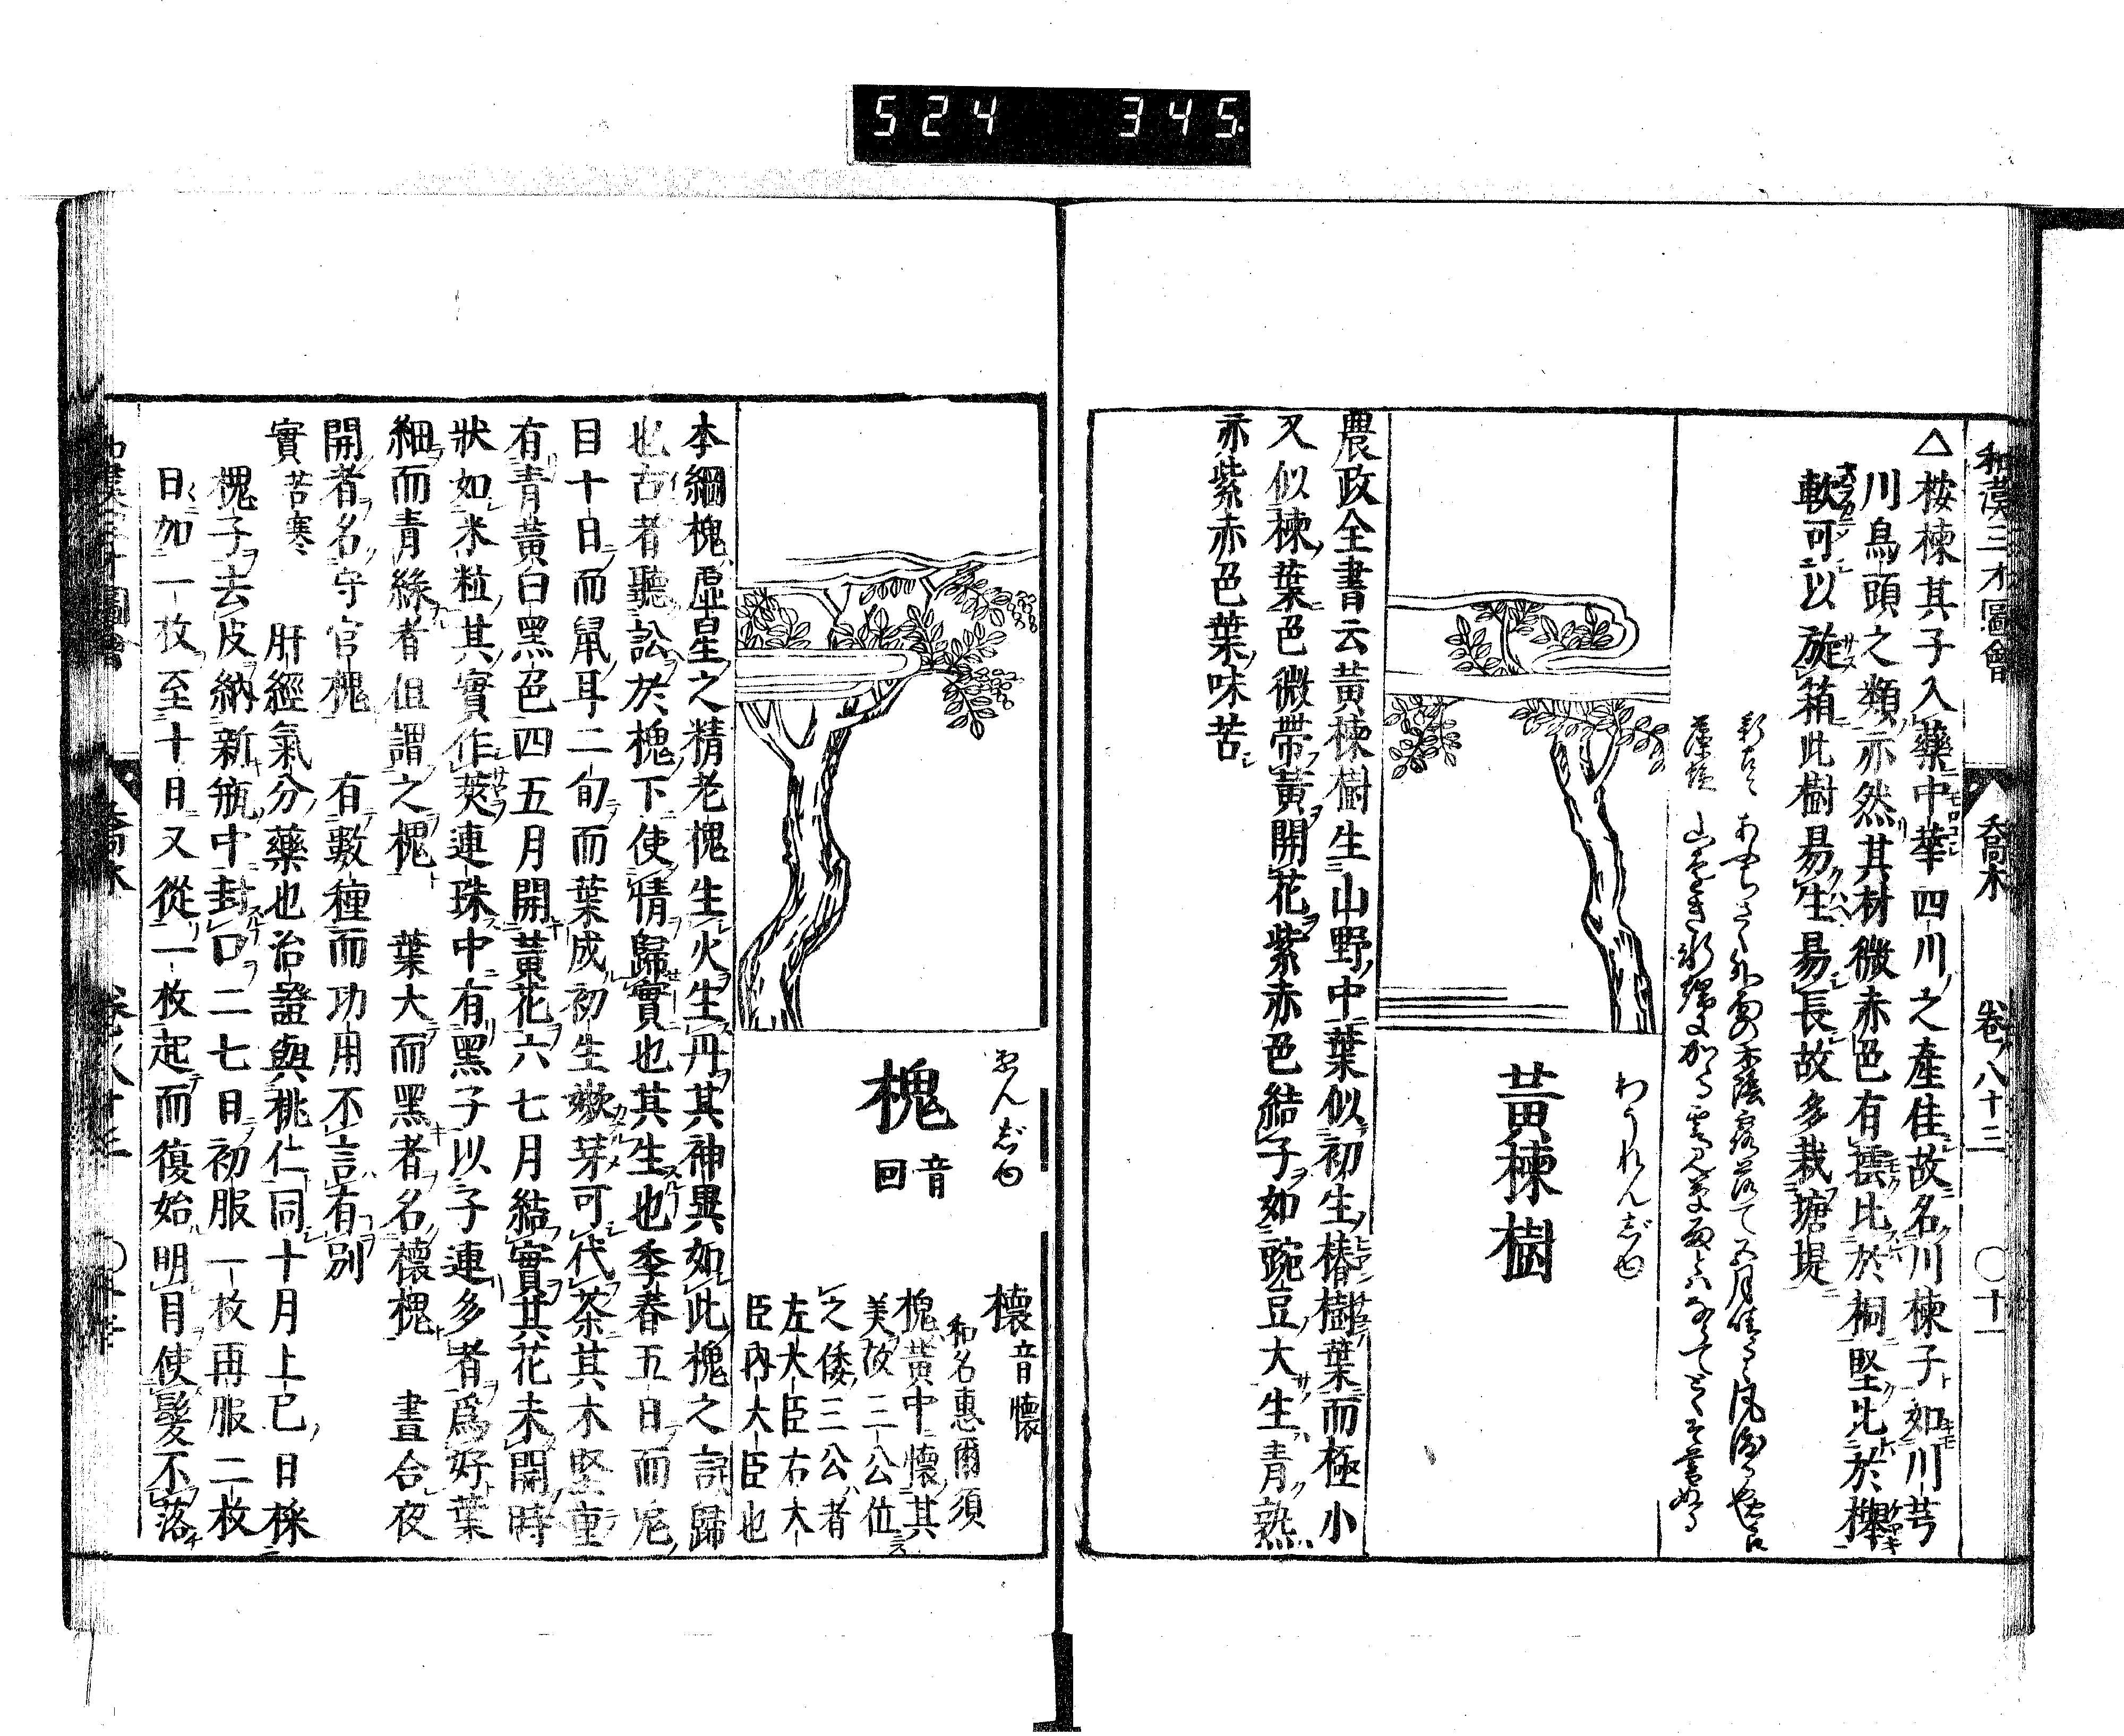 524 345
和漢三才圖會 喬木 卷ノ八十三 〇十一
△桉楝其子入藥中華四川之産佳故名川楝子如川芎
川烏頭之類亦然其材微赤色有橒比於桐堅比於欅
軟可以旋箱此樹易生易長故多栽塘堤
わうれんじゆ
黃楝樹
農政全書云黃楝樹生山野中葉似初生椿樹葉而極小
又似楝葉色微帶黃開花紫赤色結子如豌豆大生青熟
亦紫赤色葉味苦
ゑんじゆ
槐
音回
櫰音懷
和名惠爾須
槐黃中懷其
美故三公位
之倭三公者
左大臣右大
臣內大臣也
本綱槐虛星之精老槐生火生丹其神異如此槐之言歸
也古者聽訟於槐下使情歸實也其生也季春五日而兎
目十日而鼠耳二旬而葉成初生嫩芽可代茶其木堅重
有青黃白黑色四五月開黃花六七月結實其花未開時
狀如米粒其實作莢連珠中有黑子以子連多者爲好葉
細而青綠者但謂之槐 葉大而黑者名櫰槐 晝合夜
開者名守宮槐 有數種而功用不言有別
實苦寒 肝經氣分藥也治證與桃仁同十月上巳日採
槐子去皮納新瓶中封口二七日初服一枚再服二枚
日加一枚至十日又從一枚起而復始明目使髮不落